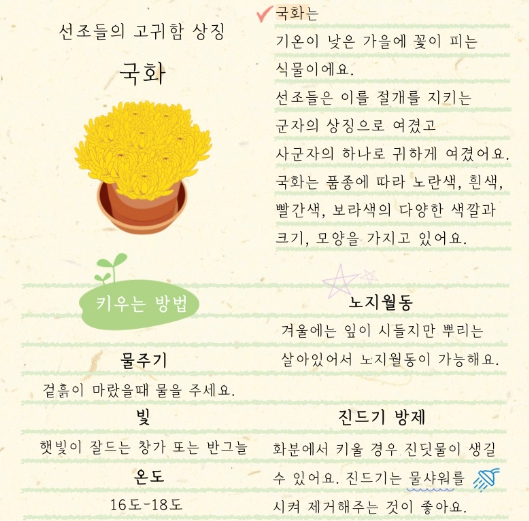 선조들의 고귀함 상징
국화
국화는
기온이 낮은 가을에 꽃이 피는
식물이에요.
선조들은 이를 절개를 지키는
군자의 상징으로 여겼고
사군자의 하나로 귀하게 여겼어요.
국화는 품종에 따라 노란색, 흰색,
빨간색, 보라색의 다양한 색깔과
크기, 모양을 가지고 있어요.
키우는 방법
물주기
겉흙이 마랐을때 물을 주세요.
빛
햇빛이 잘드는 창가 또는 반그늘
온도
16도-18도
노지월동
겨울에는 잎이 시들지만 뿌리는
살아있어서 노지월동이 가능해요.
진드기 방제
화분에서 키울 경우 진딧물이 생길
수 있어요. 진드기는 물샤워를
시켜 제거해주는 것이 좋아요.